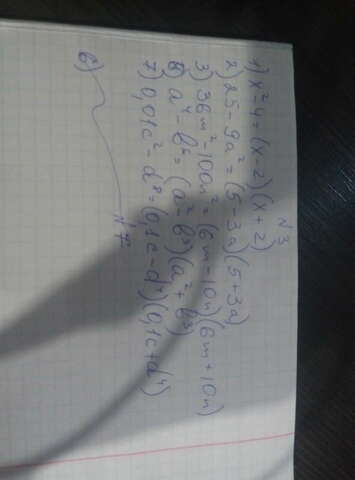 N 3
1) x²-4=(x-2)(x+2)
2) 25-9a²=(5-3a)(5+3a)
3) 36m²-100n²=(6m-10n)(6m+10n)
6) a⁴-b⁶=(a²-b³)(a²+b³)
7) 0,01c²-d⁸=(0,1c-d⁴)(0,1c+d⁴)
6)